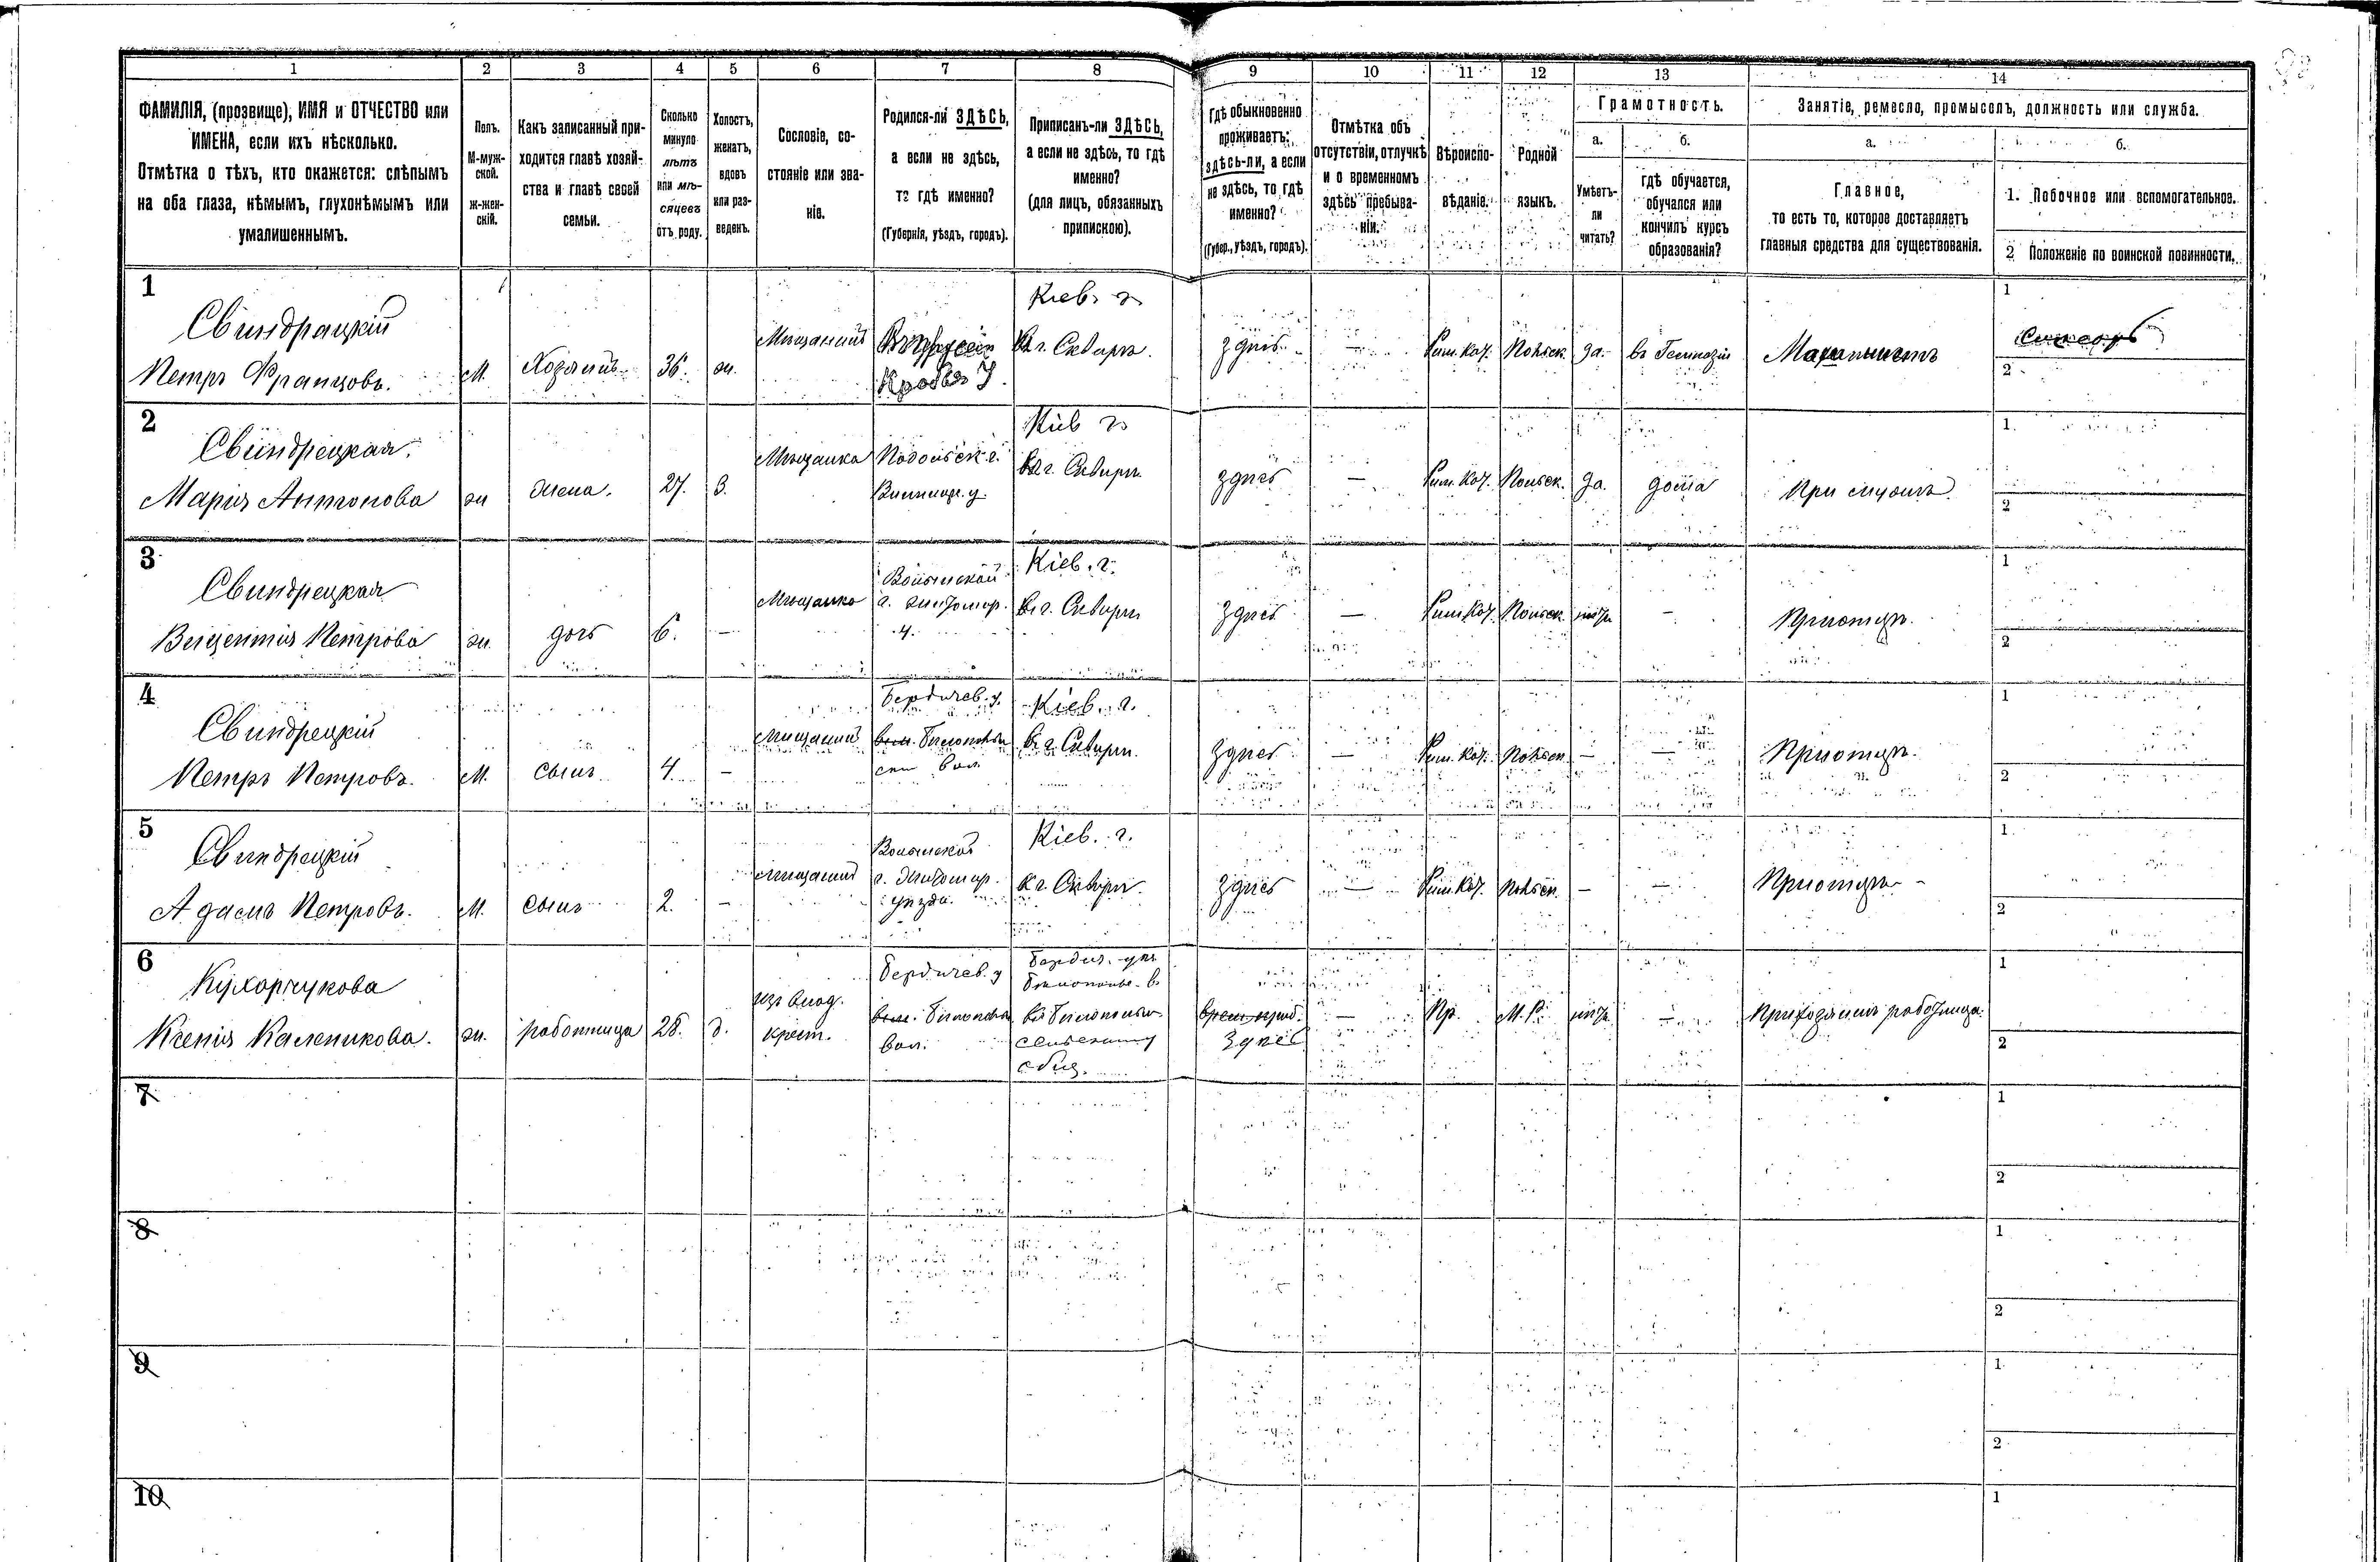 1 2 3 4 5 6 7 8 9 10 11 12 13 14
ФАМИЛІЯ, (прозвище), ИМЯ и ОТЧЕСТВО или
ИМЕНА, если ихъ нѣсколько.
Отмѣтка о тѣхъ, кто окажется: слѣпымъ
на оба глаза, нѣмымъ, глухонѣмымъ или
умалишеннымъ.
Полъ.
М-муж-
ской.
ж-жен-
скій.
Какъ записанный при-
ходится главѣ хозяй-
ства и главѣ своей
семьи.
Сколько
минуло
лѣтъ
или мѣ-
сяцевъ
отъ роду.
Холостъ,
женатъ,
вдовъ
или раз-
веденъ.
Сословіе, со-
стояніе или зва-
ніе.
Родился-ли ЗДѢСЬ,
а если не здѣсь,
то гдѣ именно?
(Губернія, уѣздъ, городъ).
Приписанъ-ли ЗДѢСЬ,
а если не здѣсь, то гдѣ
именно?
(для лицъ, обязанныхъ
припискою).
Гдѣ обыкновенно
проживаетъ:
здѣсь-ли, а если
не здѣсь, то гдѣ
именно?
(Губер., уѣздъ, городъ).
Отмѣтка объ
отсутствіи, отлучкѣ
и о временномъ
здѣсь пребыва-
ніи.
Вѣроиспо-
вѣданіе.
Родной
языкъ.
Грамотность.
а.
Умѣетъ-
ли
читать?
б.
гдѣ обучается,
обучался или
кончилъ курсъ
образованія?
Занятіе, ремесло, промыселъ, должность или служба.
а.
Главное,
то есть то, которое доставляетъ
главныя средства для существованія.
б.
1. Побочное или вспомогательное.
2 Положеніе по воинской повинности.
1
Свиндрацкій
Петръ Францовъ.
М.
Хозяинъ
36.
ж.
Мищанинъ
Кіев. г
Въ г. Сквиръ.
зднсь
—
Рим. Кат.
Польск.
да.
въ Гимназіи
Махинистъ
1
2
2
Свиндрецкая
Марія Антонова
ж
жена.
27.
З.
Мищанка
Подольск. г.
Винниц. у.
Кіев г
Въ г. Сквиръ
зднес
—
Рим. Кат.
Польск.
да.
дома
При мужъ
1
2
3
Свиндрецкая
Вицентия Петрова
ж.
доч
6.
—
Мищанка
Волынской
г. Житомир.
у.
Кіев. г.
Въ г. Сквиръ
зднес
—
Рим. Кат.
Польск.
нѣт
—
Приотцъ.
1
2
4
Свиндрецкій
Петръ Петровъ.
М.
сынъ
4.
—
мищанинъ
Бердичев. у.
вол.
Кіев. г.
Въ г. Сквиръ.
зднес
—
Рим. Кат.
Польск.
—
—
Приотцъ.
1
2
5
Свиндрецкій
Адамъ Петровъ.
М.
сынъ
2.
—
мищанинъ
Волынской
г. Житомир.
уѣзда.
Кіев. г.
К г. Сквиръ.
зднес
—
Рим Кат.
Польск.
—
—
Приотцъ
1
2
6
Кухорчукова
Ксенія Каленикова.
ж.
работница
28.
д.
изъ влад.
крест.
Бердичев. у
вол.
Бердич. уѣз.
сельскому
общ.
Зднес
—
Пр.
М. Р.
нѣт
—
работница
1
2
7
1
2
8
1
2
9
1
2
10
1